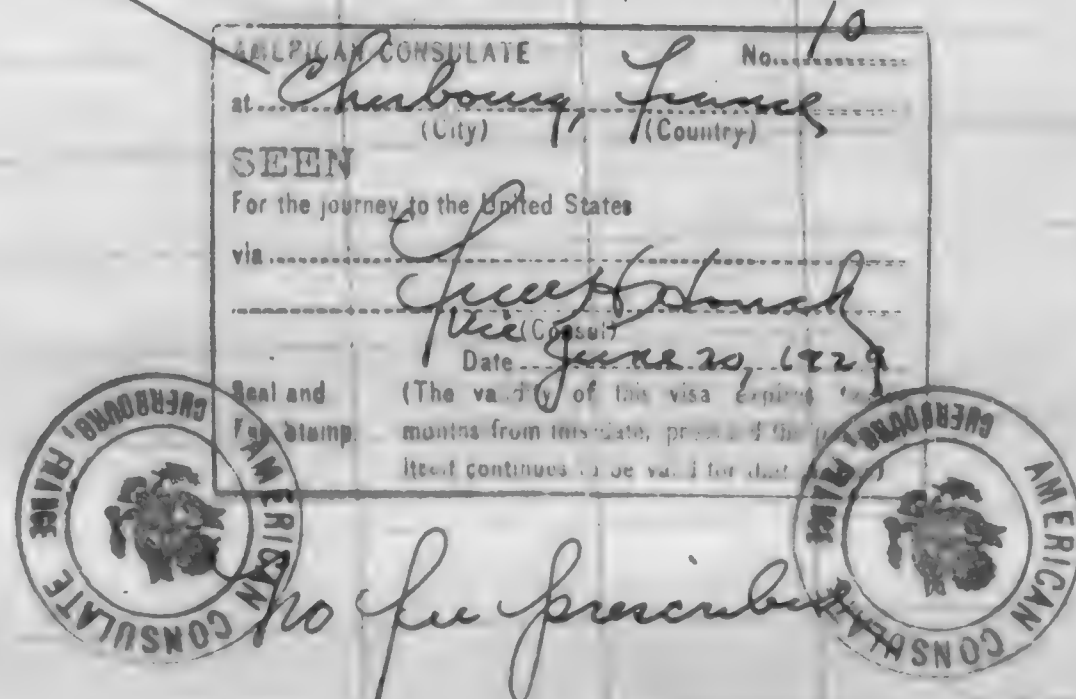 AMERICAN CONSULATE No. 10
at Cherbourg, France
(City) (Country)
SEEN
For the journey to the United States
via
Vice (Consul)
Date June 20, 1929
Seal and (The validity of this visa expires
Fee Stamp. months from this date, provided the
itself continues to be valid for that
AMERICAN CONSULATE CHERBOURG, FRANCE
AMERICAN CONSULATE CHERBOURG, FRANCE
No fee prescribed